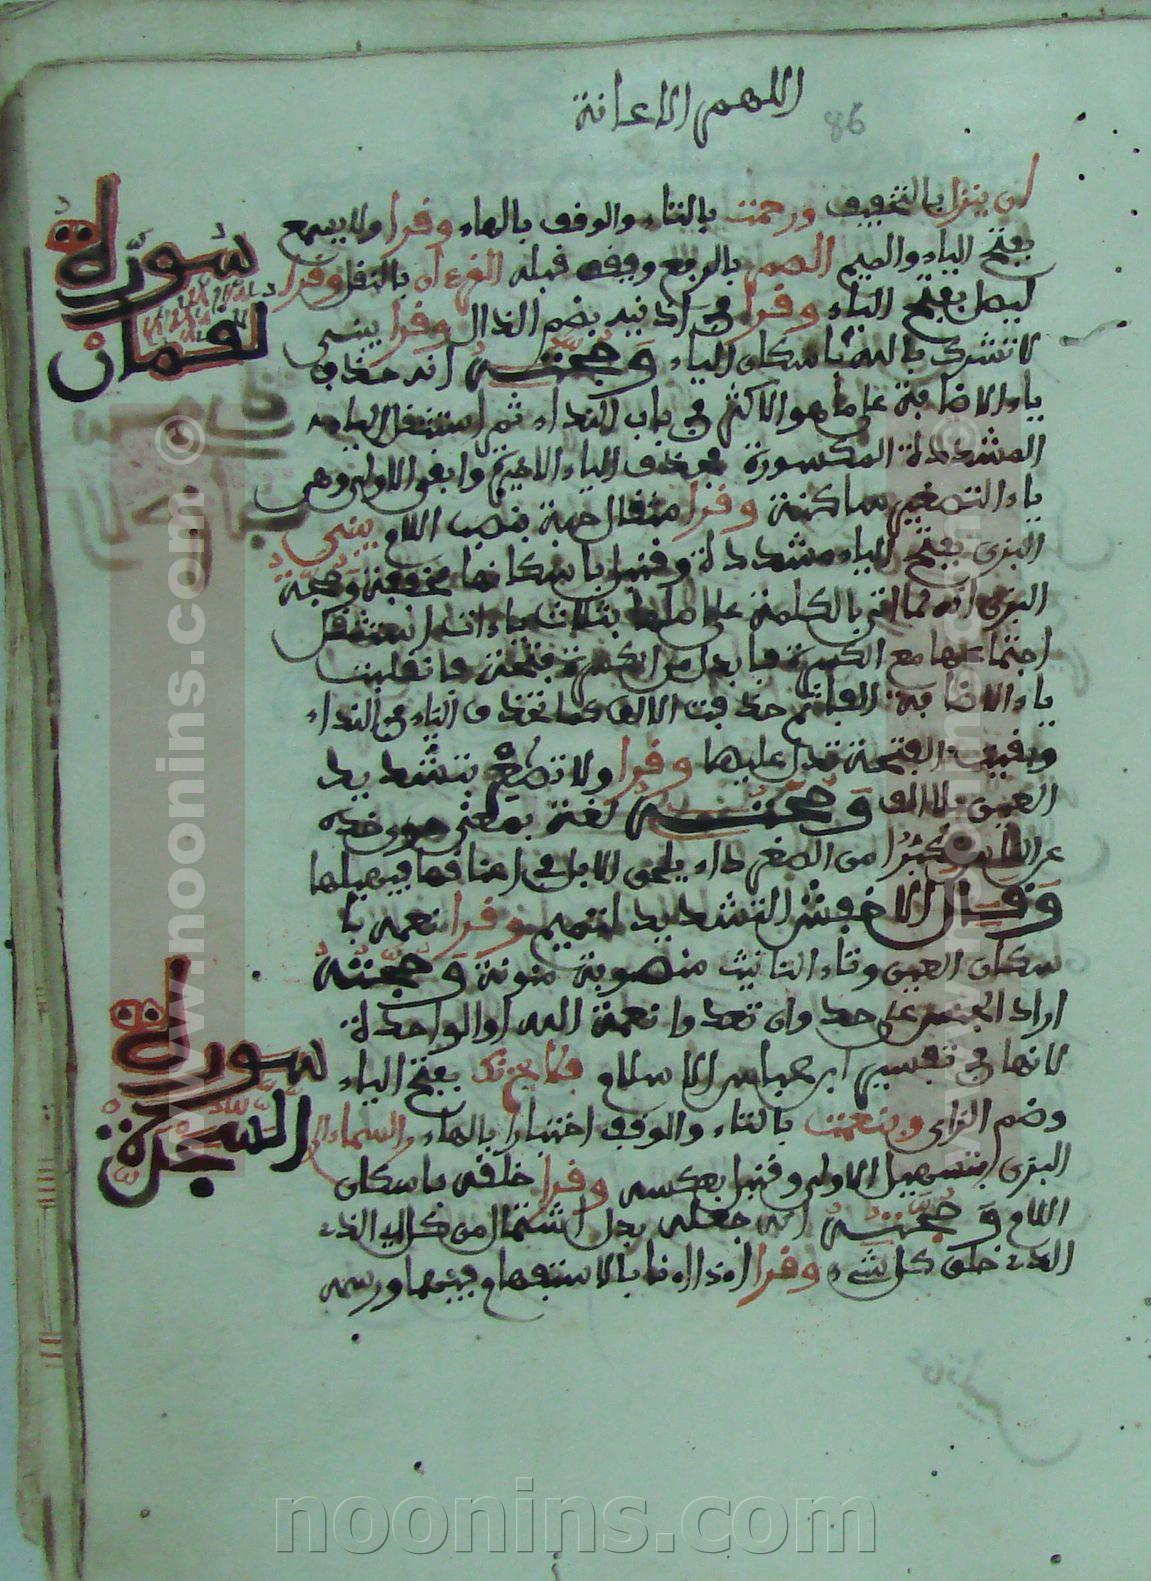 اللهم الاعانة
86
ان ينزل بالتخفيف ورحمت بالتاء والوقف بالهاء وقرا ولا يسمع
بفتح الياء والميم الصم بالرفع وقف قبله القرءان بالنقل وقرا
ليضل بفتح الياء وقرا في اذنيه بضم الذال وقرا يبني
لا تشرك بالله باسكان الياء وحجته انه حذف
ياء الاضافة على ما هو الاكثر في باب النداء ثم استثقل الياء
المشددة المكسورة فحذف الياء الاخيرة وابقى الاولى وهي
ياء التصغير ساكنة وقرا مثقال حبة بنصب اللام يبني
البزي بفتح الياء مشددة وقنبل باسكانها مخففة وحجة
البزي انه لما اتى بالكلمة على اصلها بثلاث ياءات استثقل
اجتماعها مع الكسرة فابدل من الكسرة فتحة فانقلبت
ياء الاضافة الفا ثم حذفت الالف كما تحذف الياء في النداء
وبقيت الفتحة تدل عليها وقرا ولا تصعر بتشديد
العين بلا الف وحجته لغة بمعنى
عن الناس تكبرا من الصعر داء يلحق الابل في اعناقها فيميلها
وقال الاخفش التشديد لتميم وقرا نعمة با
سكان العين وتاء التانيث منصوبة منونة وحجته
اراد الجنس على حد وان تعدوا نعمة الله او الواحدة
لانها في تفسير ابن عباس الاسلام فلا يحزنك بفتح الياء
وضم الزاي وبنعمت بالتاء والوقف اختبارا بالهاء والسماء الى
البزي بتسهيل الاولى وقنبل بعكسه وقرا خلقه باسكان
اللام وحجته انه جعله بدل اشتمال من كل اي الذي
الذي خلق كل شيء وقرا اءذا اءنا بالاستفهام فيهما ورسمه
سورة
لقمان
سورة
السجدة
www.noonins.com ©
www.noonins.com ©
noonins.com